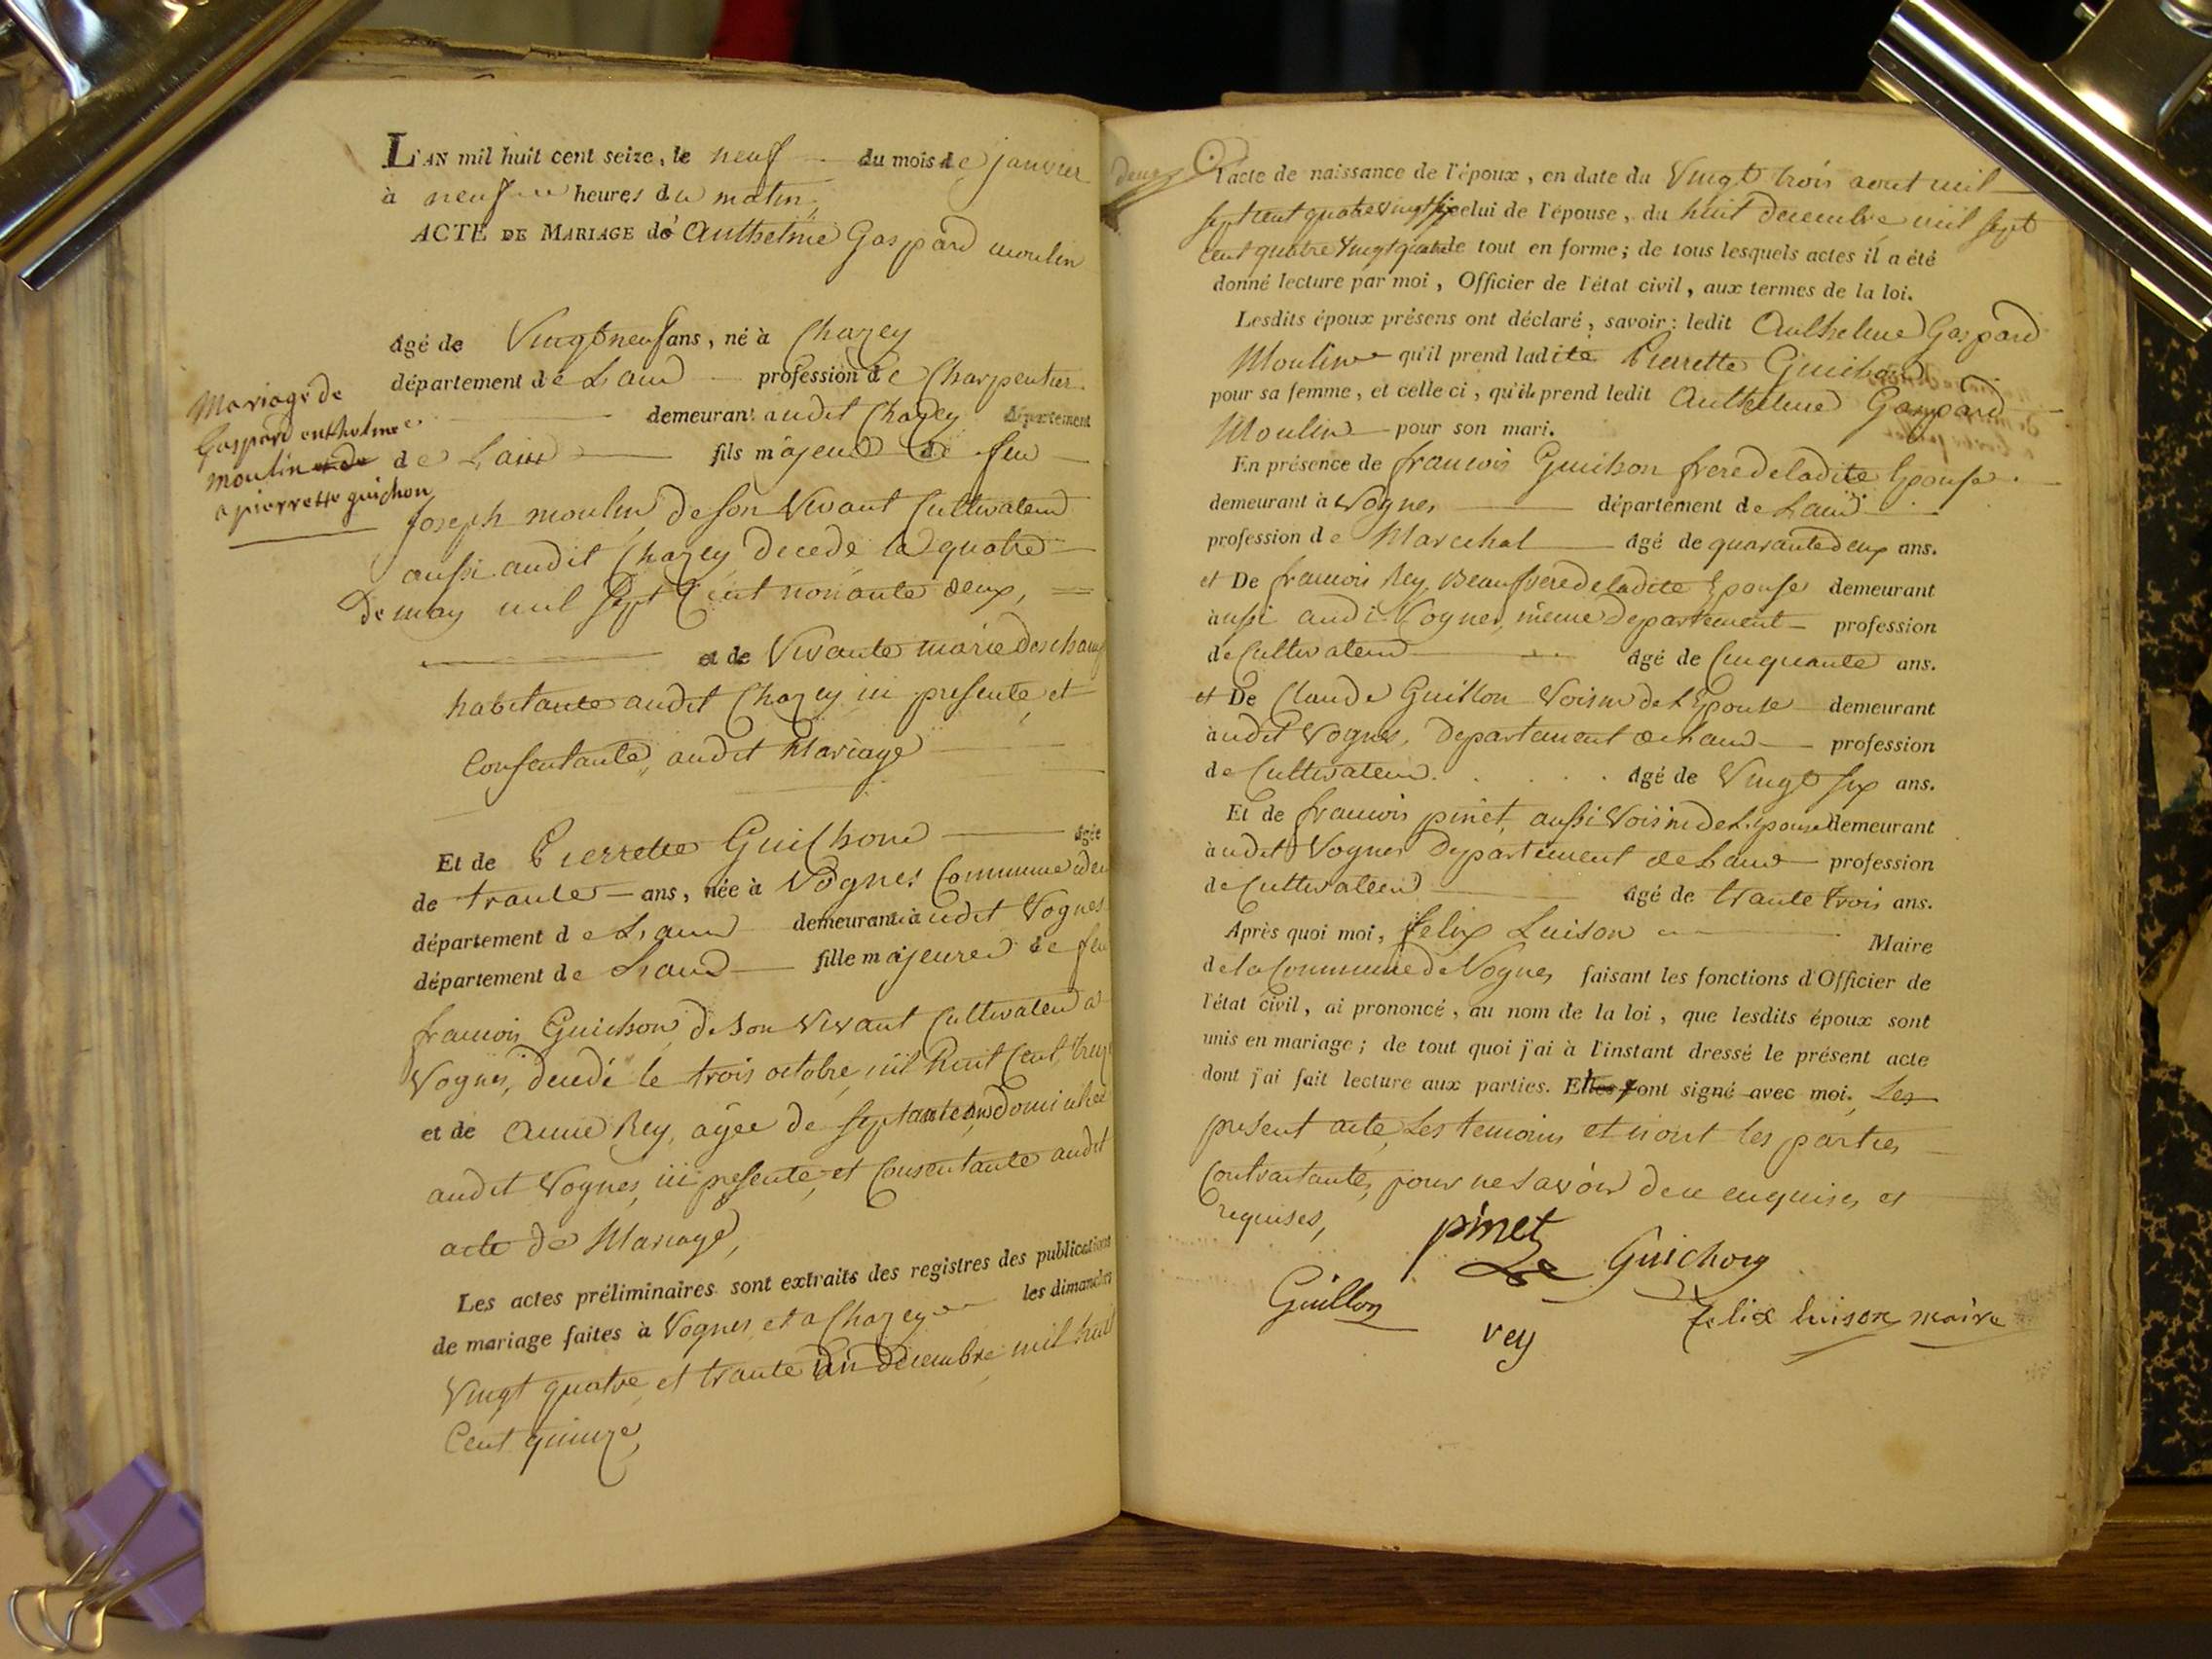 L'AN mil huit cent seize, le neuf du mois de janvier
à neuf heures du matin,
ACTE DE MARIAGE de Anthelme Gaspard moulin
âgé de Vingt neuf ans, né à Chazey
département de Lain profession de Charpentier
demeurant audit Chazey département
de Lain fils majeur de feu
Mariage de
Gaspard enthelme
moulin
a pierrette guichon
Joseph moulin de son Vivant Cultivateur
aussi audit Chazey decedé le quatre
De may mil Sept Cent nonante deux,
et de Vivante marie Deschamp
habitante audit Chazey ici presente et
Consentante, audit Mariage
Et de Pierrette Guichon âgée
de trante ans, née à Vognes Commune
département de Lain demeurant à udit Vognes
département de Lain fille majeure de feu
francois Guichon, de son Vivant Cultivateur a
Vognes, decedé le trois octobre mil huit Cent treize
et de Anne Rey, agée de septante ans domiciliée
audit Vognes, ici presente, et Consentante audit
acte de Mariage,
Les actes préliminaires sont extraits des registres des publications
de mariage faites à Vognes et a Chazey les dimanches
Vingt quatre et trante un decembre mil huit
Cent quinze,
l'acte de naissance de l'époux, en date du Vingt trois aout mil
sept cent quatre vingt six celui de l'épouse, du huit decembre mil sept
cent quatre Vingt quatre le tout en forme; de tous lesquels actes il a été
donné lecture par moi, Officier de l'état civil, aux termes de la loi.
Lesdits époux présens ont déclaré, savoir: ledit Anthelme Gaspard
Moulin qu'il prend ladite Pierrette Guichon
pour sa femme, et celle ci, qu'il prend ledit Anthelme Gaspard
Moulin pour son mari.
En présence de francois Guichon frere de ladite Epouse
demeurant à Vognes département de Lain
profession de Marechal âgé de quarante deux ans.
et De francois Rey, Beaufrere de ladite Epouse demeurant
aussi audit Vognes, même Departement profession
de Cultivateur âgé de Cinquante ans.
et De Claude Guillon Voisin de l'Epouse demeurant
audit Vognes, Departement de Lain profession
de Cultivateur. âgé de Vingt six ans.
Et de francois pinet, aussi Voisin de L'epouse demeurant
audit Vognes Departement de Lain profession
de Cultivateur âgé de trante trois ans.
Après quoi moi, felix Luison Maire
de la Commune de Vognes faisant les fonctions d'Officier de
l'état civil, ai prononcé, au nom de la loi, que lesdits époux sont
unis en mariage; de tout quoi j'ai à l'instant dressé le présent acte
dont j'ai fait lecture aux parties. Et ont signé avec moi, Le
present acte, Les temoins et non les parties
Contractantes, pour ne savoir de ce enquises et
requises,
pinet
Guichon
Guillon
felix luison maire
rey